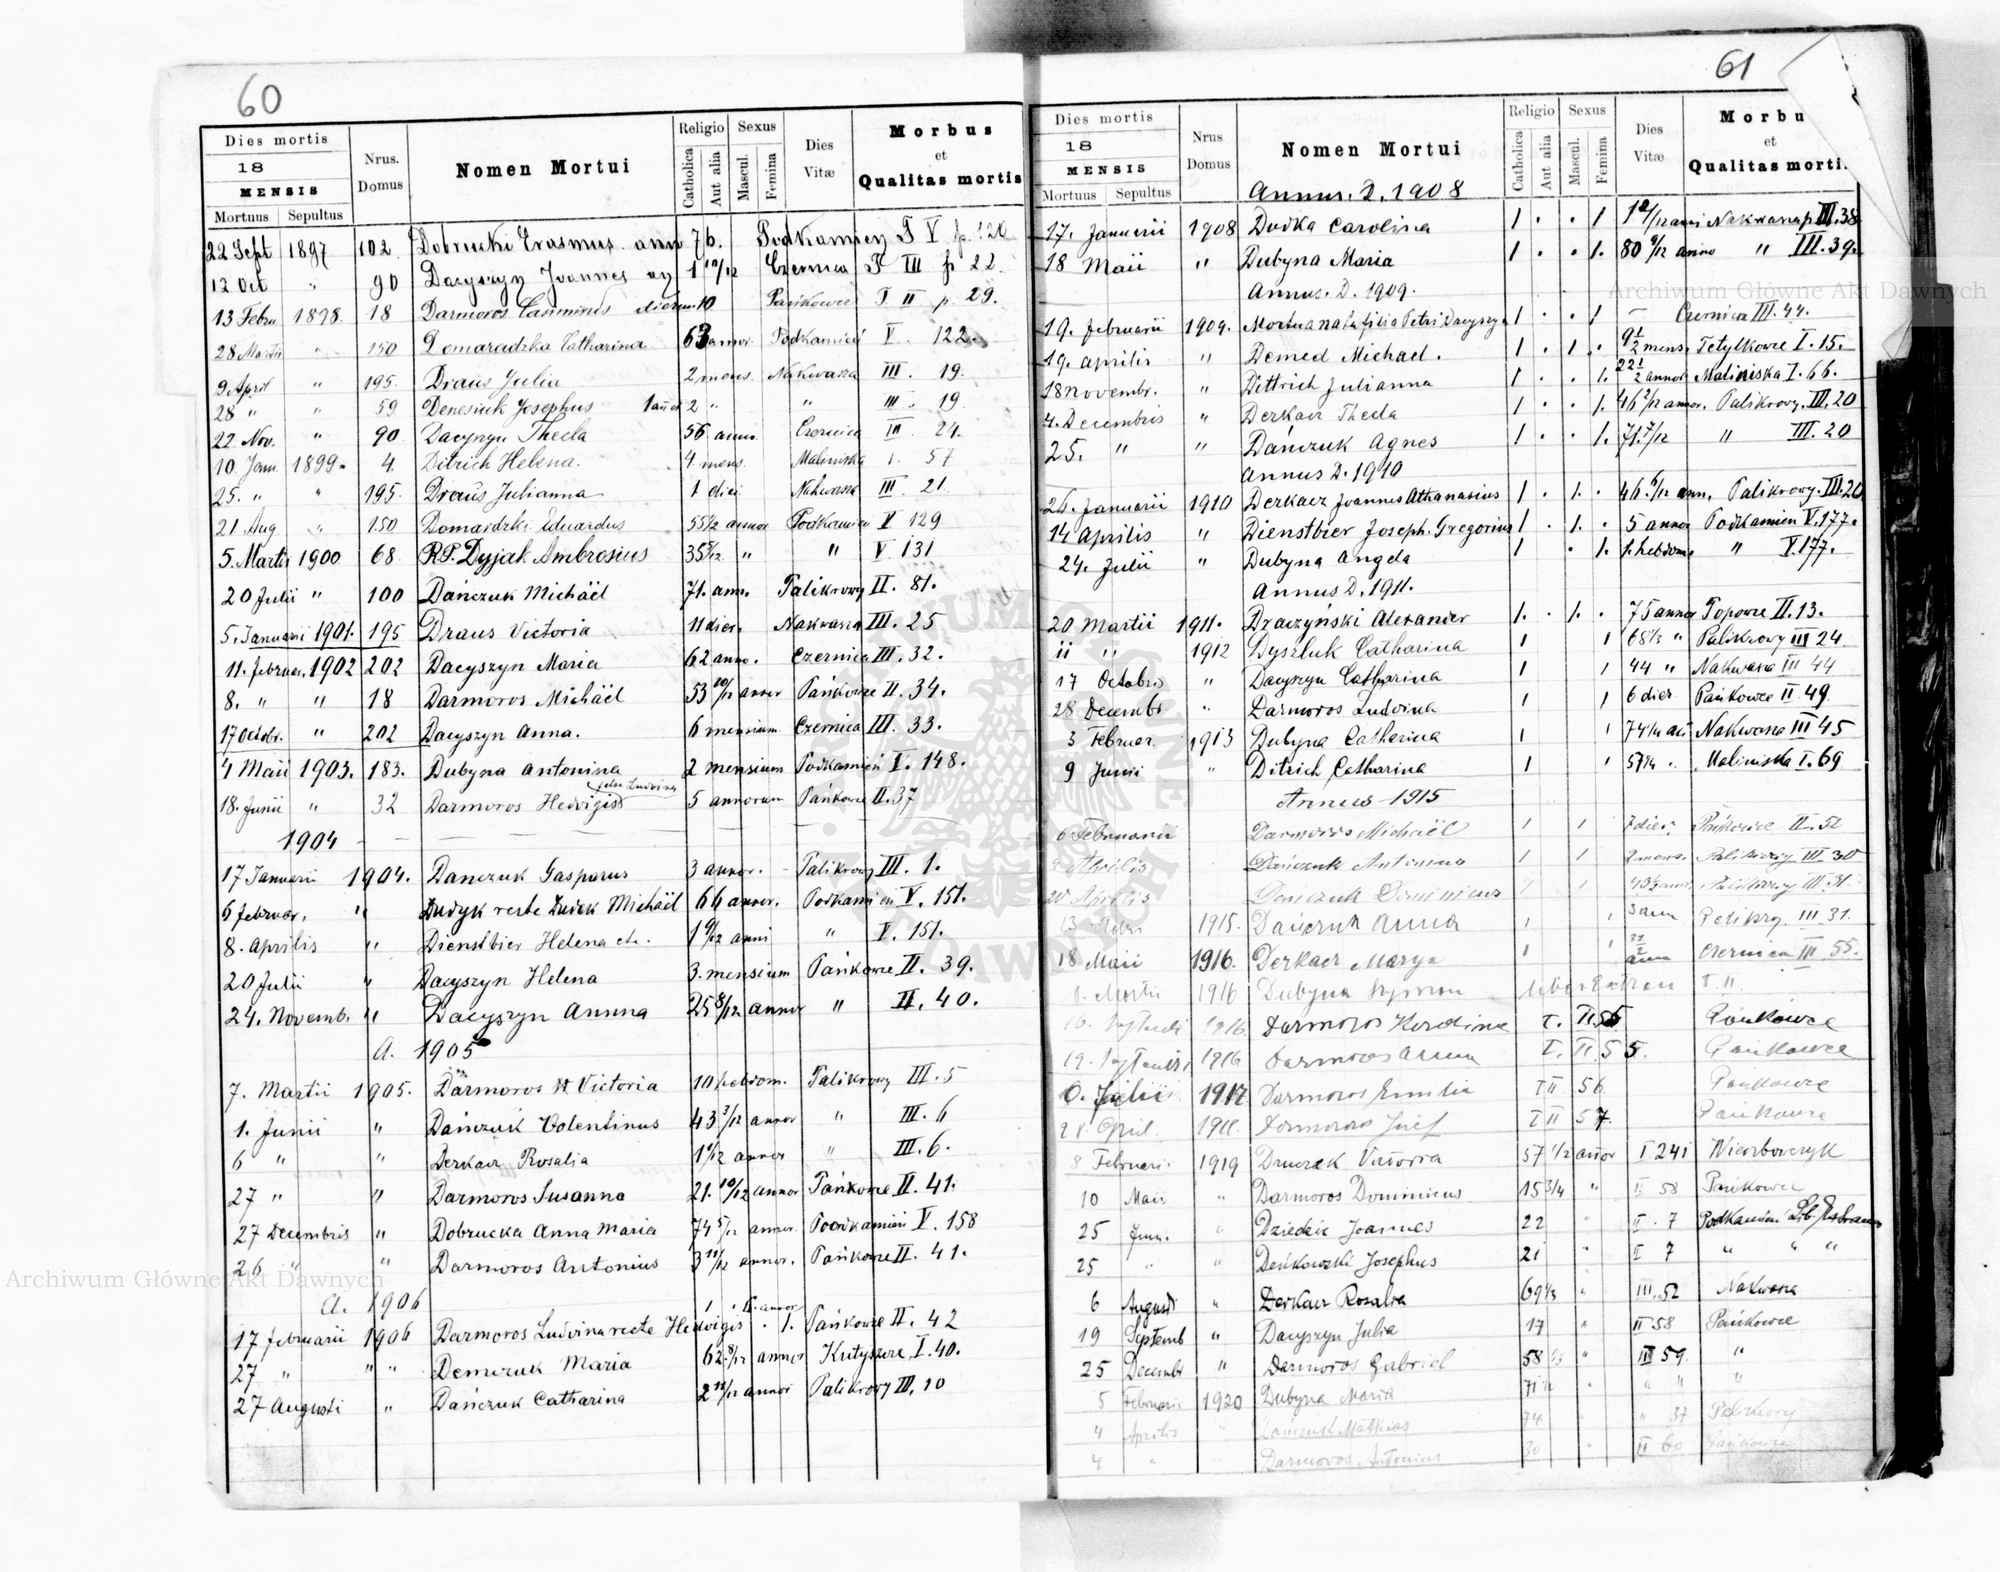 60
Dies mortis
18
MENSIS
Mortuus Sepultus
Nrus. Domus
Nomen Mortui
Religio
Catholica Aut alia
Sexus
Mascul. Femina
Dies Vitæ
Morbus
et
Qualitas mortis
22 Sept 1897 102 Dobrucki Erasmus ann 76. Podkamień T V p. 120
12 Oct " 90 Dacyszyn Joannes 1 10/12 Czernica T III p 22.
13 Febru 1898. 18 Darmoros Casimirus dierum 10 Pańkowce T II p. 29.
28 Martii " 150 Domaradzka Catharina 63 annor. Podkamień V. 122.
9 April " 195. Draus Julia 2 mens. Nakwasza III. 19.
28 " " 59 Denesiuk Josephus 2 " " III. 19
22 Nov. " 90 Dacyszyn Thecla 56 anno. Czernica III. 24.
10 Janu. 1899 4. Ditrich Helena. 4 mens. Maliniska I. 57
25. " " 195. Draus Julianna 1 diei Nakwasza III. 21.
21 Aug " 150 Domardzki Eduardus 55 1/2 annor Podkamień V 129
5. Martii 1900 68. R.P. Dyjak Ambrosius 35 5/12 " " V. 131
20 Julii " 100 Dańczuk Michaël 71. ann. Palikrowy II. 81.
5. Januarii 1901. 195 Draus Victoria 11 dier. Nakwasza III. 25
11. februar. 1902 202 Dacyszyn Maria 62 anno. Czernica III. 32.
8. " " 18 Darmoros Michaël 53 10/12 annor Pańkowce II. 34.
17 octobr. " 202 Dacyszyn Anna. 6 mensium Czernica III. 33.
4 Maii 1903. 183. Dubyna Antonina 2 mensium Podkamień V. 148.
18. Junii " 32 Darmoros Hedvigis 5 annorum Pańkowce II. 37
1904
17 Januarii 1904. Danczuk Gasparus 3 annor. Palikrowy III. 1.
6 februar. " Dudyk recte Dudek Michaël 66 annor. Podkamień V. 151.
8. Aprilis " Dienstbier Helena 1 9/12 anni " V. 151.
20 Julii " Dacyszyn Helena 3. mensium Pańkowce II. 39.
24. Novemb. " Dacyszyn Annna 25 8/12 annor " II. 40.
A. 1905
7. Martii 1905. Darmoros Victoria 10 hebdom. Palikrowy III. 5
1. Junii " Dańczuk Valentinus 43 3/12 annor " III. 6
6 " " Derkacz Rosalia annor " III. 6.
27 " " Darmoros Susanna 21. 10/12 annor Pańkowce II. 41.
27 Decembris " Dobrucka Anna Maria 74 5/12 annor. Podkamień V. 158
26 " " Darmoros Antonius 3 11/12 annor. Pańkowce II. 41.
A. 1906
17 februarii 1906 Darmoros Ludvina recte Hedvigis . 1. Pańkowce II. 42
27 " " " Demczuk Maria 62. 8/12 annor Krutyszcze I. 40.
27 Augusti " Dańczuk Catharina 2 11/12 annor Palikrowy III. 10
61
Dies mortis
18
MENSIS
Mortuus Sepultus
Nrus Domus
Nomen Mortui
Annus. D. 1908
Religio
Catholica Aut alia
Sexus
Mascul. Femina
Dies Vitæ
Morbu
et
Qualitas morti.
17. Januarii 1908 Dudka Carolina 1 . . 1 Nakwasza III. 38
18 Maii " Dubyna Maria 1 . . 1. 80 9/12 anno " III. 39.
Annus. D. 1909.
19. februarii 1909. Mortua nata filia Petri Dacyszyn 1 . . 1 — Czernica III. 44.
19. aprilis " Demed Michael. 1 . 1 . 9 1/2 mens. Tetylkowce I. 15.
18 novembr. " Dittrich Julianna 1 . . 1. 22 1/2 annor Maliniska I. 66.
4. Decembris " Derkacz Thecla 1 . . 1. 46 2/12 annor. Palikrowy. III. 20
25. " " Dańczuk Agnes 1 . . 1. 71. 7/12 " III. 20
Annus D. 1910
26. Januarii 1910 Derkacz Joannes Athanasius 1 . 1. . 46. 9/12 ann. Palikrowy. III. 20
14 Aprilis " Dienstbier Joseph. Gregorius 1 . 1. . 5 annor Podkamień V. 177.
24. Julii " Dubyna Angela 1 . 1. 1. hebdom " V. 177.
Annus D. 1911.
20 Martii 1911. Draczyński Alexander 1. . 1. . 75 annor Popowce II. 13.
11 " 1912 Dyszluk Catharina 1 1 68 1/2 " Palikrowy III 24
17 Octobris " Dacyszyn Catharina 1 1 44 " Nakwasza III 44
28 Decembr " Darmoros Ludvina 1 1 6 dier. Pańkowce II 49.
3 Februar. 1913 Dubyna Catharina 1 1 Nakwasza III 45
9 Junii " Ditrich Catharina 1 1 Maliniska I. 69
Annus 1915
6 Februarii Darmoros Michaël 1 1 7 dier. Pańkowce II. 52
Aprilis Dańczuk Antonina 1 1 Palikrowy III 30
20 Aprilis Dańczuk Dominicus Palikrowy III. 31
13 1915. Dańczuk Anna 1 1 3 ann Palikry. III. 31.
18 Maii 1916. Derkacz Marya 1 1 Czernica III 55.
1. Martii 1916 Dubyna Szymon T. II.
16. 1916 Darmoros T. II Pańkowce
19. 1916 Darmoros Anna T. II 55. Pańkowce
6. Julii 1917 Darmoros Emilia T II 56 Pańkowce
28 April. Darmoros Józef T II 57. Pańkowce
8 Februari. 1919 57 1/2 annor I 241 Wierzbowczyk
10 Maii " Darmoros Dominicus 15 3/4 " II 58 Pańkowce
25 Junii " Dziedzic Joannes 22 " II. 7 Podkamień
25 " " Deńkowski Josephus 21 " II 7 " " "
6 Augusti " Derkacz Rosalia 69 1/3 " III. 52 Nakwasza
19 Septemb " Dacyszyn Julia 17 " II 58 Pańkowce
25 Decembr " Darmoros Gabriel 58 " II 59. "
5 Februarii 1920 Dubyna Maria 71 1/2 " " " "
4 Aprilis " Dańczuk Mathias 74. " " 37 Palikrowy
4 " " Darmoros Antonius 30 " II 60 Pańkowce
Archiwum Główne Akt Dawnych
Archiwum Główne Akt Dawnych